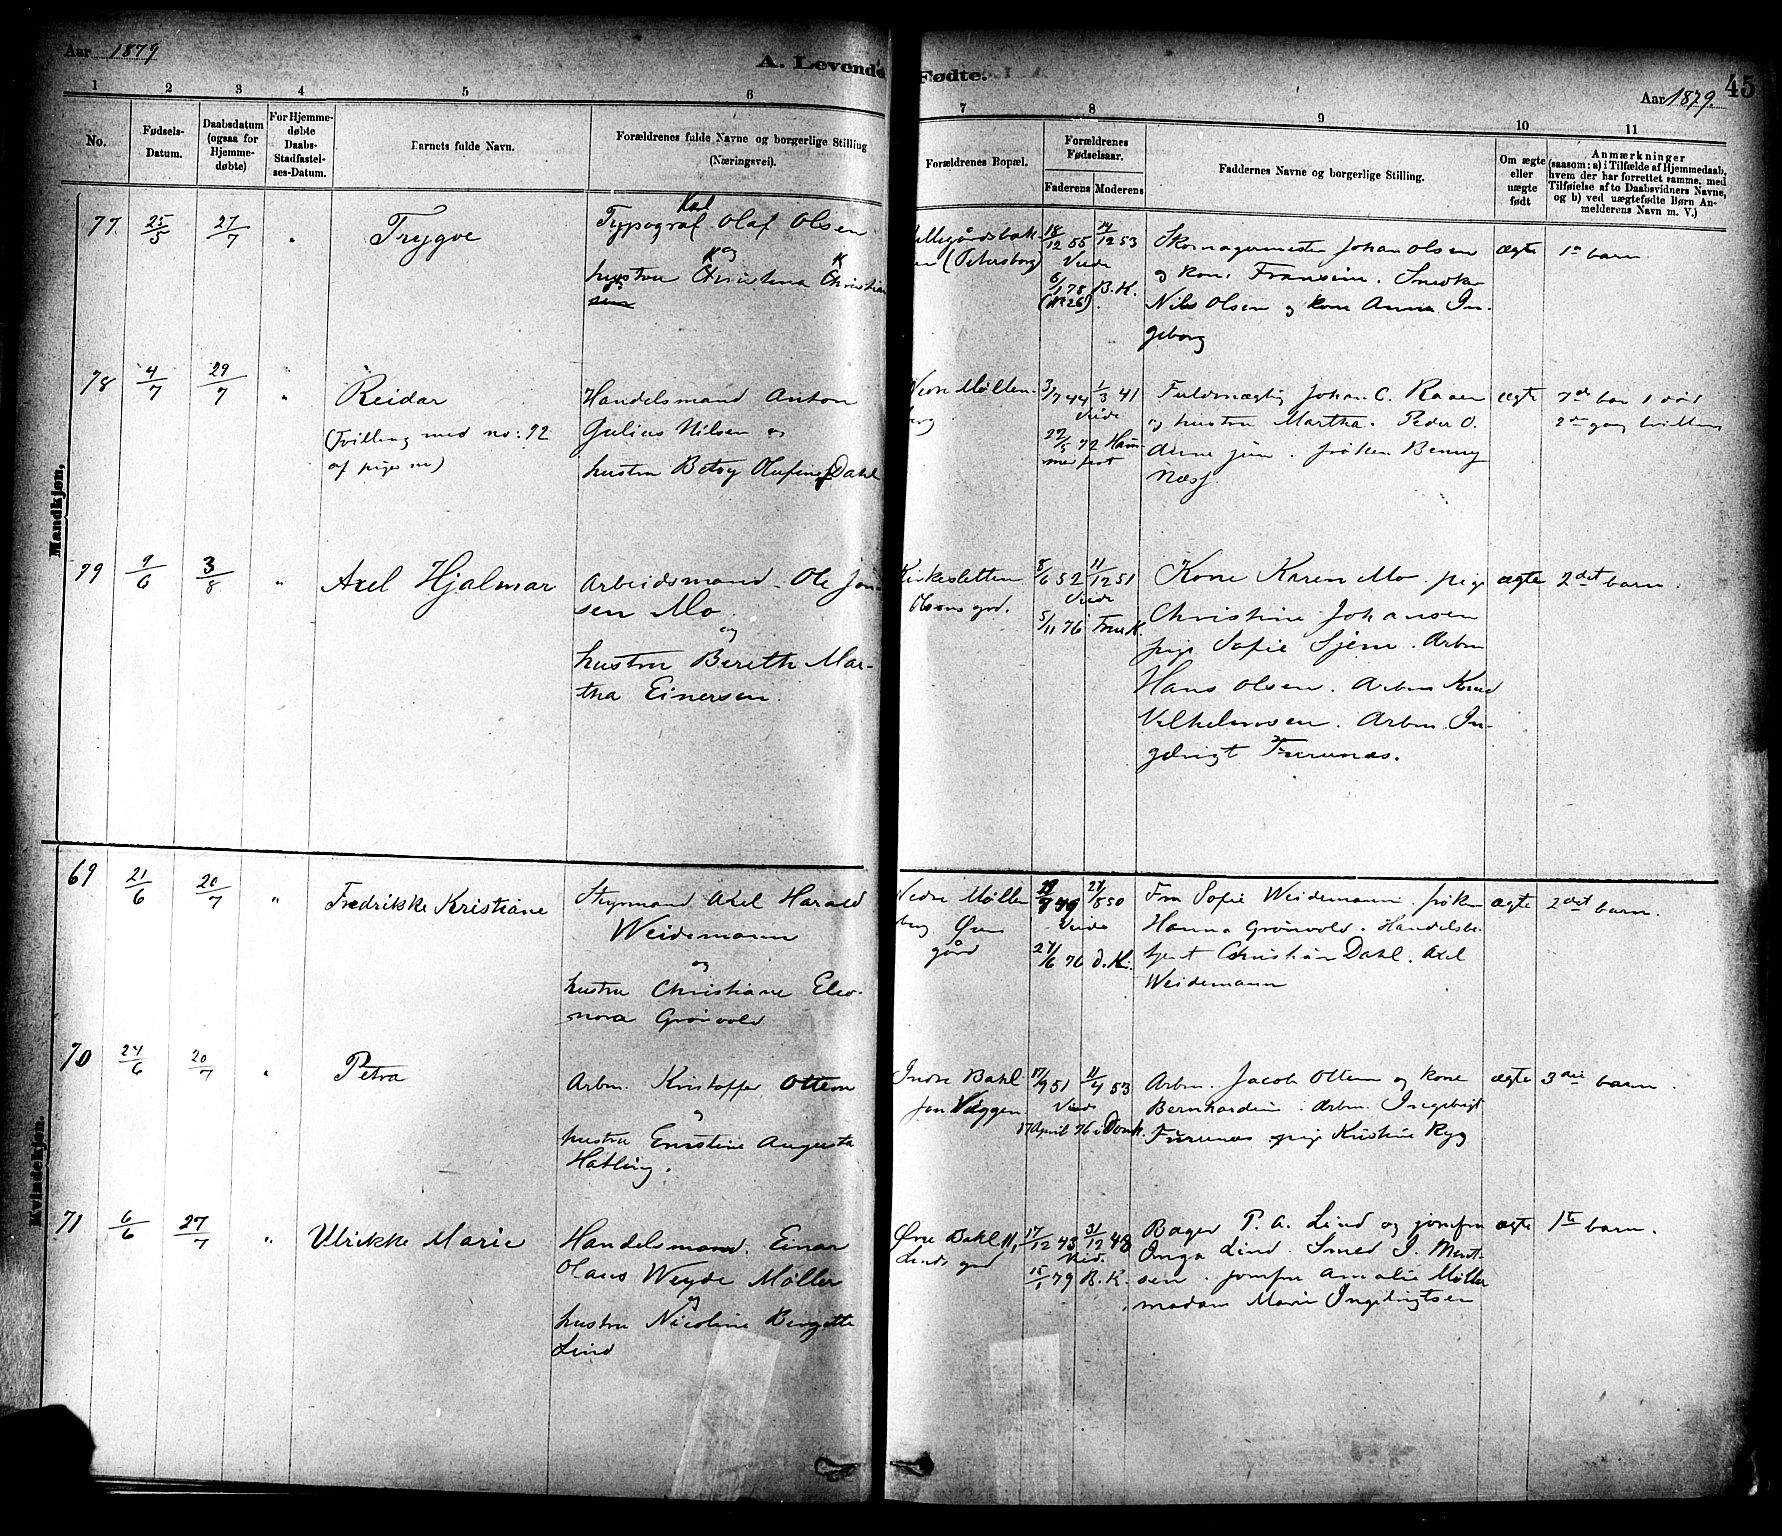 Aar 1879
A. Levende Fødte.
45
Aar 1879.
1 2 3 4 5 6 7 8 9 10 11
No.
Fødsels-Datum.
Daabsdatum (ogsaa for Hjemmedøbte)
For Hjemmedøbte Daabs-Stadfastelses-Datum.
Barnets fulde Navn.
Forældrenes fulde Navne og borgerlige Stilling (Næringsvei).
Forældrenes Bopæl.
Forældrenes Fødselsaar.
Faderens Moderens
Faddernes Navne og borgerlige Stilling.
Om ægte eller uægte født
Anmærkninger
(saasom: a) i Tilfælde af Hjemmedaab, hvem der har forrettet samme, med Tilføielse af to Daabsvidners Navne, og b) ved uægtefødte Børn Anmelderens Navn m. V.)
Mandkjøn.
77 25/5 27/7 "
Trygve
Typograf Karl Olaf Olsen
og
hustru Christina Christian
sen
(Petersborg)
18/12 55 14/12 53
Viede
6/1 78 B.K.
(No 26)
Skomagermester Johan Olsen
og kone Fransine. Snedker
Nils Olsen og kone Anna In-
geborg
ægte
1ste barn
78 4/7 29/7 "
Reidar
(Tvilling med no: 72
af pigerne)
Handelsmand Anton
Julius Nilsen og
hustru Betsy Olufine Dahl
Nedre Møllen-
berg
3/7 44 1/3 41
Viede
27/5 72 Ham-
merfest
Fuldmægtig Johan C. Raaen
og hustru Martha. Peder O.
jun. frøken Benny
Næss
ægte
7de barn 1 død
2den gang tvillinger
79 9/6 3/8 "
Axel Hjalmar
Arbeidsmand Ole Jon-
sen Mo
og
hustru Bereth Mar-
tha Einersen.
Kirkesletten
Olsens grd.
8/6 52 11/12 51
Viede
5/11 76 Frue K.
Kone Karen Mo. pige
Christine Johansen
pige Sofie Sjem. Arbm
Hans Olsen. Arbm Knud
Vilhelmsen. Arbm In-
gebrigt Furunæs.
ægte
2det barn.
Kvindekjøn.
69 21/6 20/7 "
Fredrikke Kristiane
Styrmand Axel Harald
Weidemann
og
hustru Christiane Eleo-
nora Grønvold
Nedre Møllen
berg
gård
49 50
Viede
27/6 76 d.K.
Fru Sofie Weidemann frøken
Hanna Grønvold. Handelsbe-
tjent Christian Dahl. Axel
Weidemann
ægte
2det barn.
70 24/6 20/7 "
Petra
Arbm. Kristoffer Ottem
og
hustru Ernstine Augusta
Hatling.
Indre Bakl
Jon Viggen
17/9 51 11/4 53
Viede
17 April 76 i Domk.
Arbm. Jacob Ottem og kone
Bernhardin. Arbm. Ingebrigt
Furunæs pige Kristine Ryg
ægte
3die barn.
71 6/6 27/7 "
Ulrikke Marie
Handelsmand. Einar
Olaus Weyde Møller
og
hustru Nicoline Bergitte
Lind
Øvre Bakl. 11,
Linds grd
17/12 43 31/12 48
Vied.
15/1 79 B.K.
Bager P. A. Lind og jomfru
Inga Lind. Smed J. Mort-
sen. jomfru Amalie Møller
madam Marie Ingebrigtsen
ægte
1ste barn.